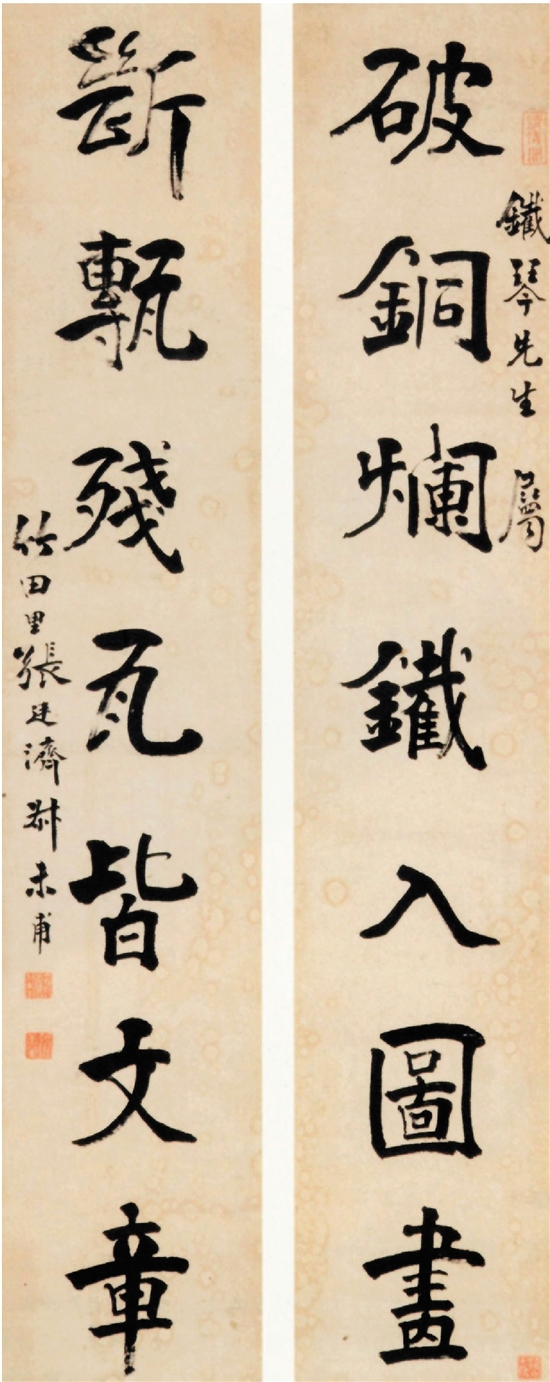 鐵琴先生屬
破銅爛鐵入圖畫
斷甎殘瓦皆文章
竹田里張廷濟尗未甫